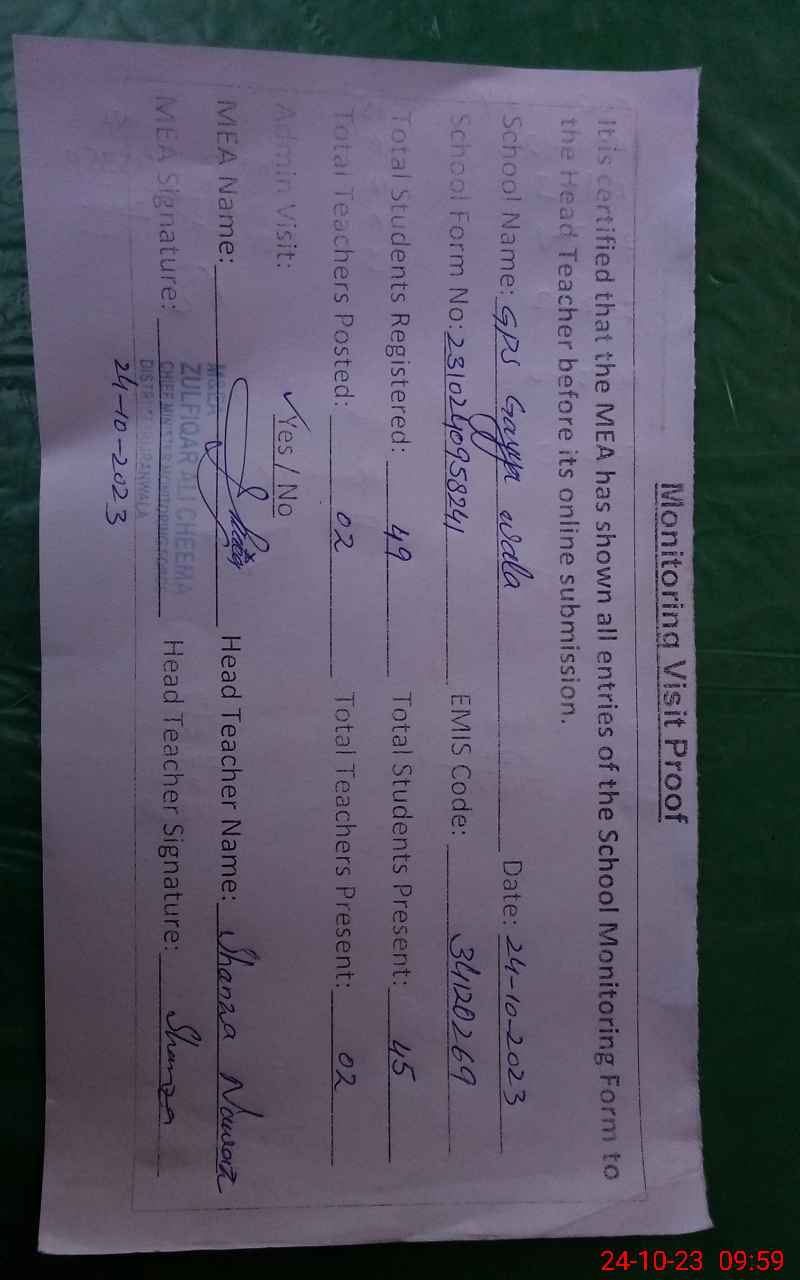 Monitoring Visit Proof
It is certified that the MEA has shown all entries of the School Monitoring Form to
the Head Teacher before its online submission.
School Name: GPS Gayya wala Date: 24-10-2023
School Form No: 2310240958241 EMIS Code: 34120269
Total Students Registered: 49 Total Students Present: 45
Total Teachers Posted: 02 Total Teachers Present: 02
Admin Visit: ✓ Yes / No
MEA Name: Head Teacher Name: Shanza Nawaz
MEA Signature: Head Teacher Signature: Shanza
ZULFIQAR ALI CHEEMA
CHIEF MINISTER MONITORING
24-10-2023
24-10-23 09:59